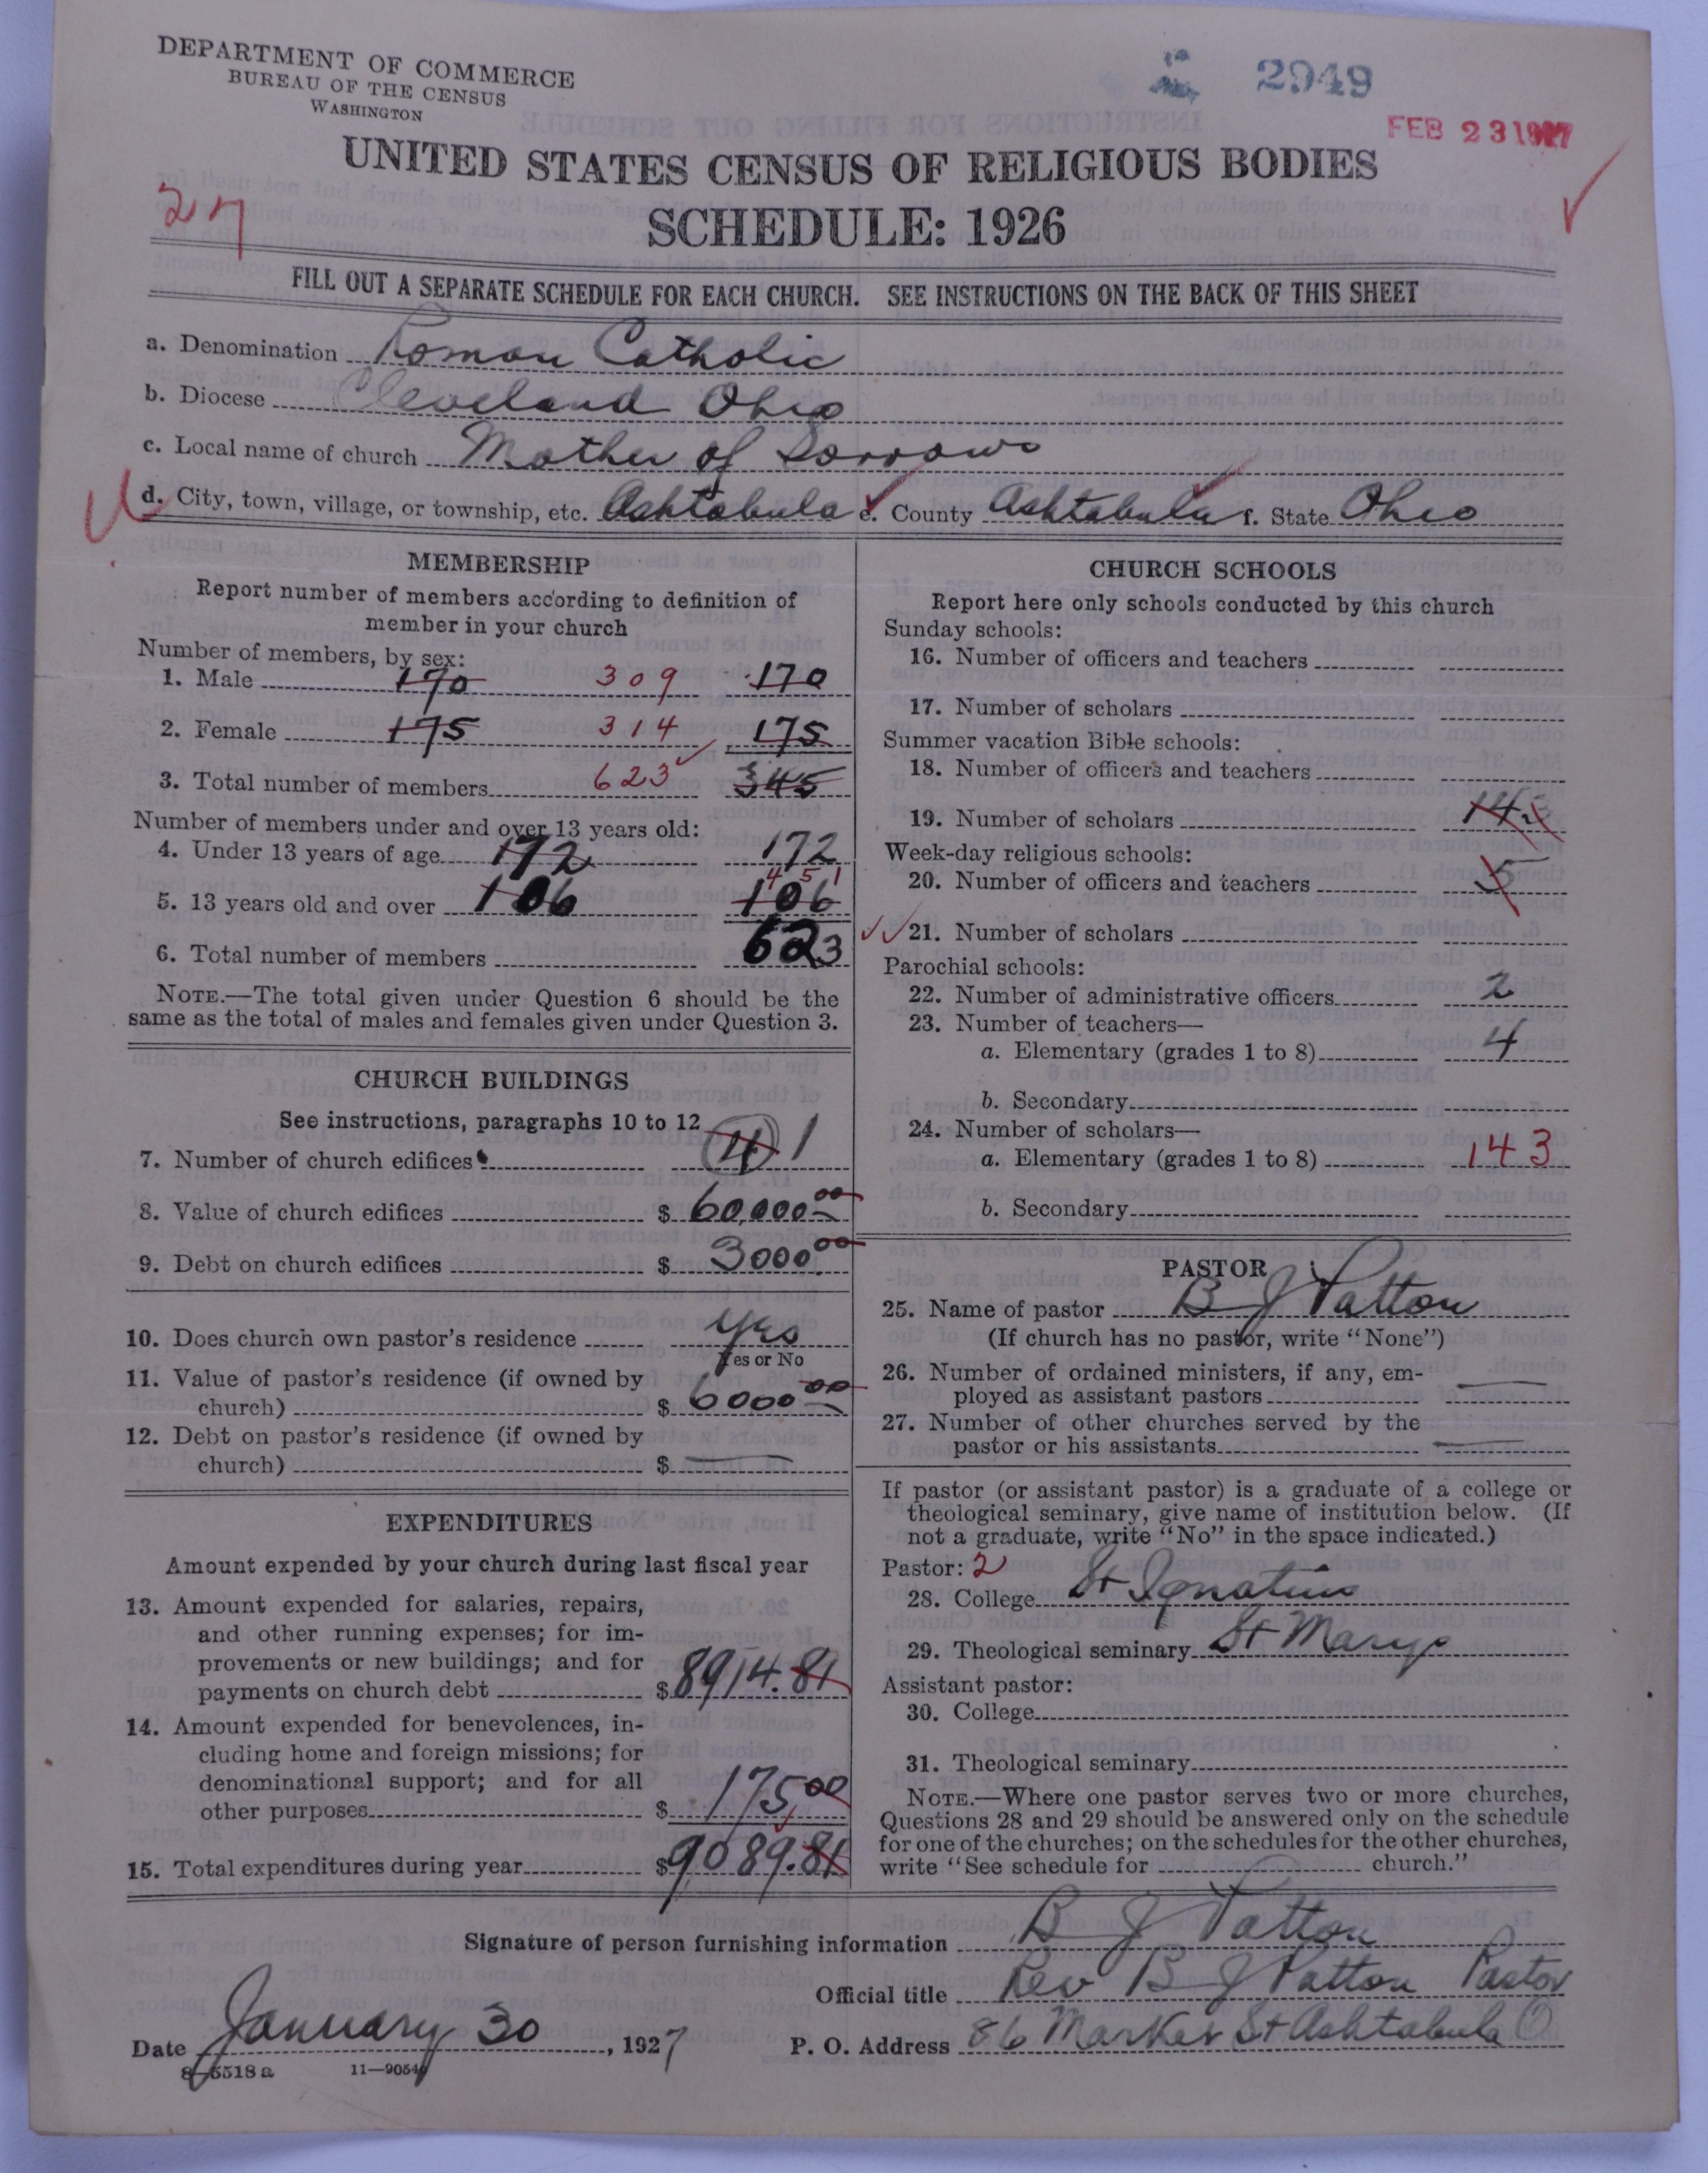 DEPARTMENT OF COMMERCE
BUREAU OF THE CENSUS
WASHINGTON
2949
FEB 23 1927
UNITED STATES CENSUS OF RELIGIOUS BODIES
27
SCHEDULE: 1926
FILL OUT A SEPARATE SCHEDULE FOR EACH CHURCH. SEE INSTRUCTIONS ON THE BACK OF THIS SHEET
a. Denomination Roman Catholic
b. Diocese Cleveland Ohio
c. Local name of church Mother of Sorrows
d. City, town, village, or township, etc. Ashtabula e. County Ashtabula f. State Ohio
MEMBERSHIP
Report number of members according to definition of
member in your church
Number of members, by sex:
1. Male 170 309 170
2. Female 175 314 175
3. Total number of members 623 345
Number of members under and over 13 years old:
4. Under 13 years of age 172 172
451
5. 13 years old and over 106 106
6. Total number of members 623
NOTE.—The total given under Question 6 should be the
same as the total of males and females given under Question 3.
CHURCH BUILDINGS
See instructions, paragraphs 10 to 12
7. Number of church edifices 4 1
8. Value of church edifices $ 60,000.00
9. Debt on church edifices $ 3000.00
10. Does church own pastor's residence yes
Yes or No
11. Value of pastor's residence (if owned by
church) $ 6000.00
12. Debt on pastor's residence (if owned by
church) $ —
EXPENDITURES
Amount expended by your church during last fiscal year
13. Amount expended for salaries, repairs,
and other running expenses; for im-
provements or new buildings; and for
payments on church debt $ 8914.81
14. Amount expended for benevolences, in-
cluding home and foreign missions; for
denominational support; and for all
other purposes $ 175.00
15. Total expenditures during year $ 9089.81
CHURCH SCHOOLS
Report here only schools conducted by this church
Sunday schools:
16. Number of officers and teachers
17. Number of scholars
Summer vacation Bible schools:
18. Number of officers and teachers
19. Number of scholars
Week-day religious schools:
20. Number of officers and teachers 5
21. Number of scholars
Parochial schools:
22. Number of administrative officers 2
23. Number of teachers—
a. Elementary (grades 1 to 8) 4
b. Secondary
24. Number of scholars—
a. Elementary (grades 1 to 8) 143
b. Secondary
PASTOR
25. Name of pastor B J Patton
(If church has no pastor, write "None")
26. Number of ordained ministers, if any, em-
ployed as assistant pastors —
27. Number of other churches served by the
pastor or his assistants —
If pastor (or assistant pastor) is a graduate of a college or
theological seminary, give name of institution below. (If
not a graduate, write "No" in the space indicated.)
Pastor: 2
28. College St Ignatius
29. Theological seminary St Marys
Assistant pastor:
30. College
31. Theological seminary
NOTE.—Where one pastor serves two or more churches,
Questions 28 and 29 should be answered only on the schedule
for one of the churches; on the schedules for the other churches,
write "See schedule for church."
Signature of person furnishing information B J Patton
Official title Rev B J Patton Pastor
Date January 30, 1927 P. O. Address 86 Market St Ashtabula O
8—5518a 11—9054